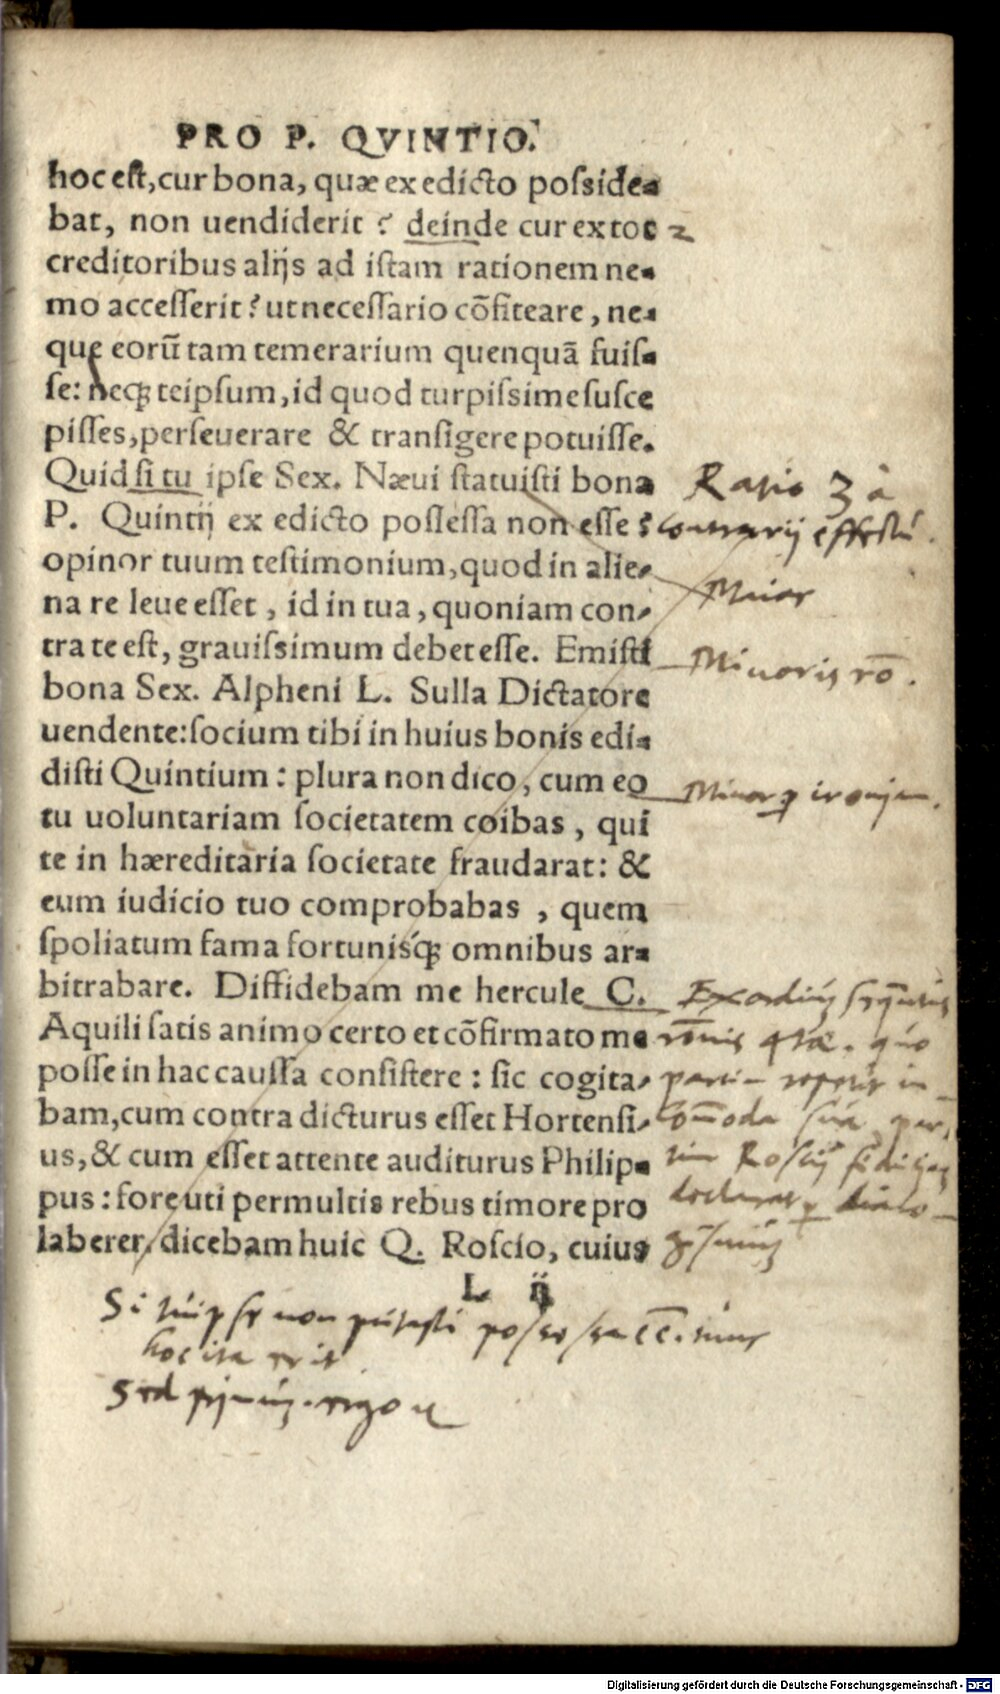 PRO P. QVINTIO.
hoc est, cur bona, quæ ex edicto posside-
bat, non uendiderit? deinde cur ex tot 2
creditoribus alijs ad istam rationem ne-
mo accesserit? ut necessario cõfiteare, ne-
que eorũ tam temerarium quenquã fuis-
se: neq; teipsum, id quod turpissime susce
pisses, perseuerare & transigere potuisse.
Quid si tu ipse Sex. Næui statuisti bona
P. Quintij ex edicto possessa non esse?
opinor tuum testimonium, quod in alie-
na re leue esset, id in tua, quoniam con-
tra te est, grauissimum debet esse. Emisti
bona Sex. Alpheni L. Sulla Dictatore
uendente: socium tibi in huius bonis edi-
disti Quintium: plura non dico, cum eo
tu uoluntariam societatem coibas, qui
te in hæreditaria societate fraudarat: &
eum iudicio tuo comprobabas, quem
spoliatum fama fortunisq́; omnibus ar-
bitrabare. Diffidebam me hercule C.
Aquili satis animo certo et cõfirmato me
posse in hac caussa consistere: sic cogita-
bam, cum contra dicturus esset Hortensi-
us, & cum esset attente auditurus Philip-
pus: fore uti permultis rebus timore pro
laberer, dicebam huic Q. Roscio, cuius
L ij
Ratio 3 à
contrarij effectu.
Minor
Minoris rõ.
Minor ironiam.
Exordiũ
partim in
Roscij
Si non putasti possessa
hoc ita erit
Sed ergo
Digitalisierung gefördert durch die Deutsche Forschungsgemeinschaft - DFG